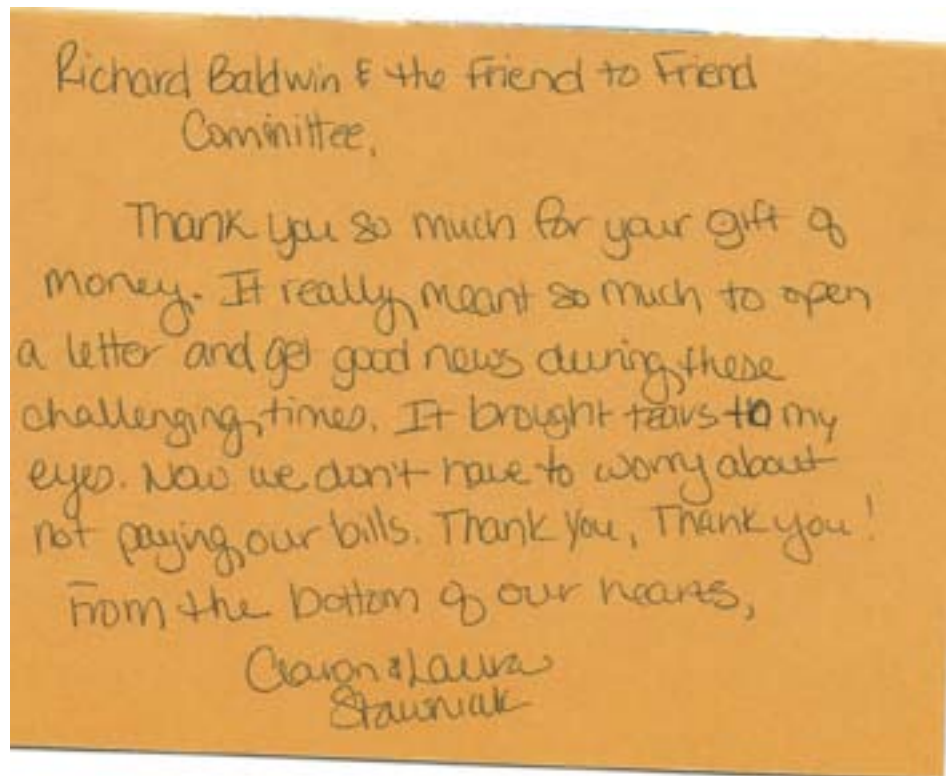 Richard Baldwin & the Friend to Friend
Committee,
Thank you so much for your gift of
money. It really meant so much to open
a letter and get good news during these
challenging times. It brought tears to my
eyes. Now we don't have to worry about
not paying our bills. Thank you, Thank you!
From the bottom of our hearts,
Aaron & Laura